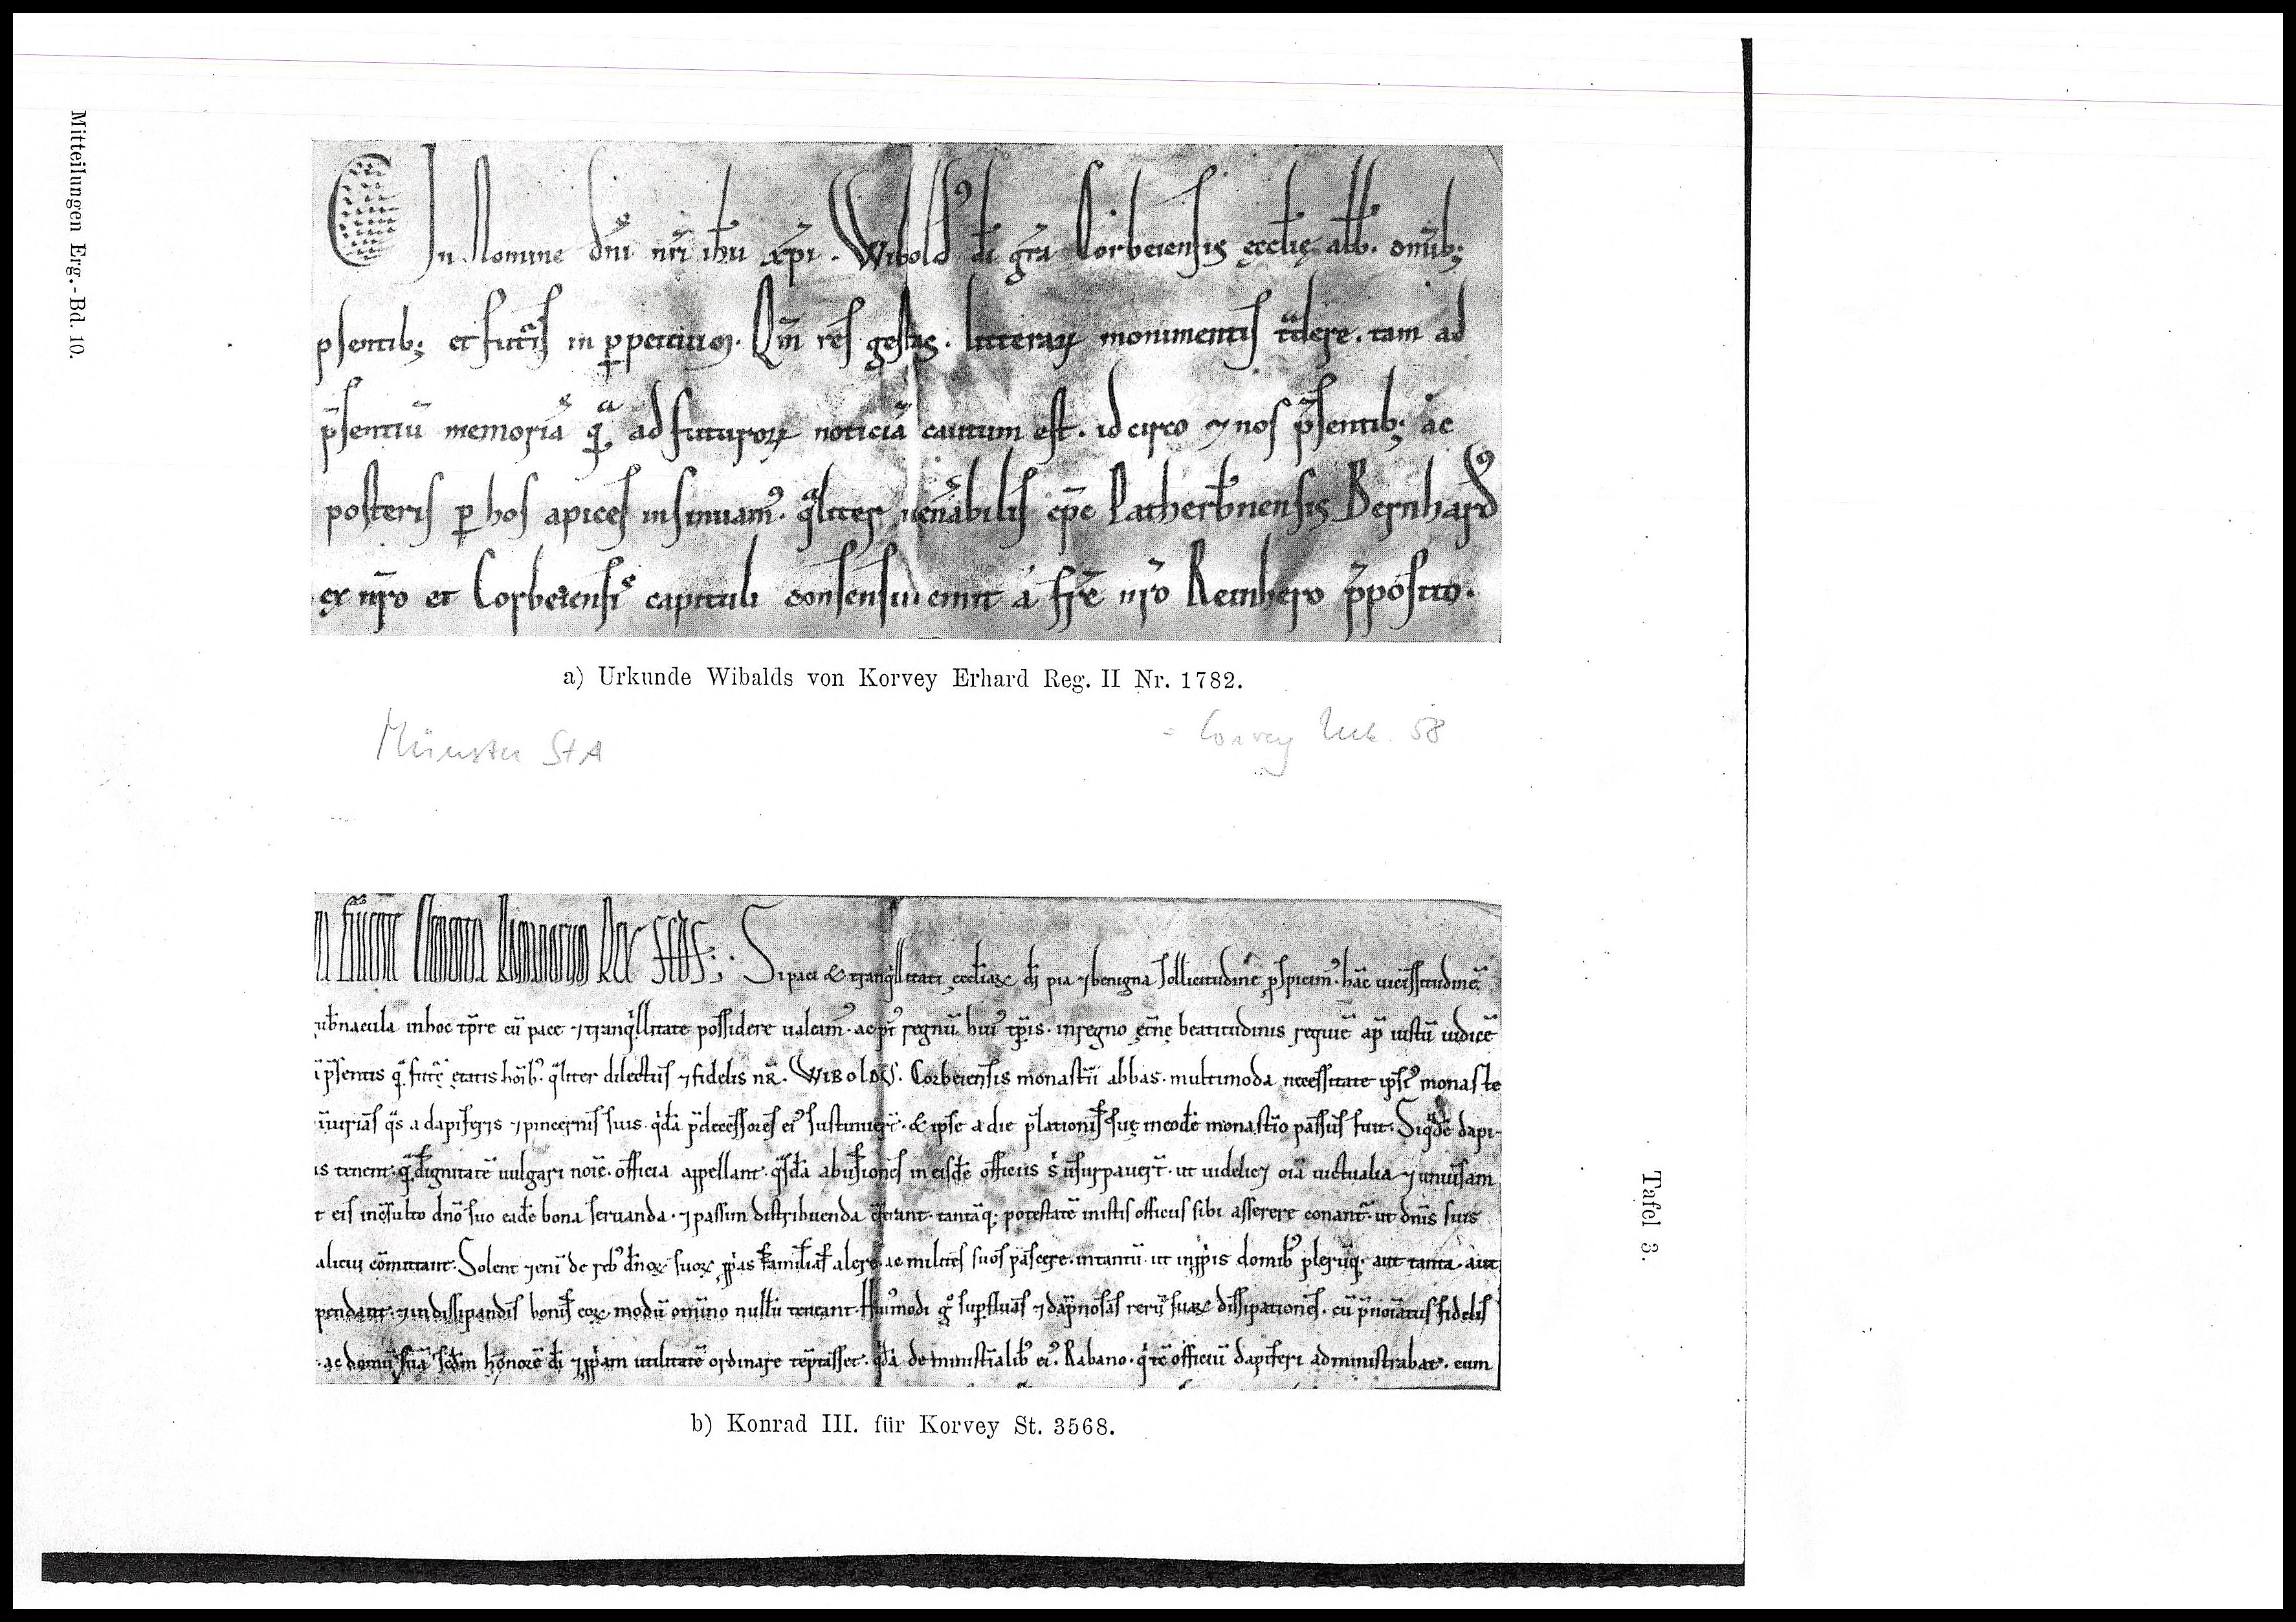 Mitteilungen Erg.-Bd. 10.
In Nomine dn̄i nr̄i ih̄u xp̄i . Wibold' dī gr̄a Corbeiensis ęcclię abb. omīb;
p̄sentib; et futuris in ꝑpetuum. Qm̄ res gestas . litterarꝝ monumentis t̄dere . tam ad
p̄sentiū memoriā q̄ ad futurorꝝ noticiā cautum est . id circo ⁊ nos p̄sentib; ac
posteris ꝑ hos apices insinuam'. qͣliter uen̄abilis ep̄c Patherb̄nensis Bernhard'
ex nr̄o et Corbeiensis capituli consensu emit a fr̄e nr̄o Reinhero p̄posito.
a) Urkunde Wibalds von Korvey Erhard Reg. II Nr. 1782.
Münster StA
= Corvey Urk. 58
Romanorum Rex scds; Si paci & tranqͥllitati ęccl̄iarꝝ dī pia ⁊ benigna sollicitudine ꝓspicim'. hāc uicissitudinē
inhoc tp̄re cū pace ⁊ tranqͥllitate possidere ualeam'. ac regnū hui' tp̄is . inregno ętn̄ę beatitudinis requiē ap̄ iustū iudicē
p̄sentis q̄ futͥę ętatis hōib'. qͣliter dilectus ⁊ fidelis nr̄. WIBOLDS'. Corbeiensis monastīi abbas . multimoda necessitate ipsi' monaste
iniuriās qͣs a dapiferis ⁊ pincernis suis . qͥdā p̄decessores ei' sustinuer̄t . & ipse a die p̄lationis suę ineodē monast̄io passus fuit. Siqͥdē dapi-
is tenent . q̄ dignitatē uulgari noīe . officia appellant . qͣsdā abusiones in eisdē officiis s̄ usurpauer̄t . ut uidelicꝫ oīa uictualia ⁊
t eis incōsulto dnō suo eadē bona seruanda . ⁊ passim distribuenda q̄rant . tantāq; potestatē inistis officiis sibi asserere conant̄. ut dn̄is suis
alicui cōmittant. Solent ⁊eni de reb' dn̄oꝝ suoꝝ ꝓp̄as familias alere . ac milites suos pascere . intantū . ut inꝓp̄is domib' plerūq; aut tanta . aut
pendant . ⁊ indissipandis bonis eoꝝ . modū omīno nullū teneant. Hui'modi gͦ suꝑfluas ⁊ dāpnosas rerū suaꝝ dissipationes . cū p̄noīatus fidelis
. ac domū suā scdm̄ honorē dī ⁊ ꝓp̄am utilitatē ordinare tēptasset . qͥdā de minist̄alib' ei'. Rabano . qͥ tc̄ officiū dapiferi administrabat . eum
b) Konrad III. für Korvey St. 3568.
Tafel 3.